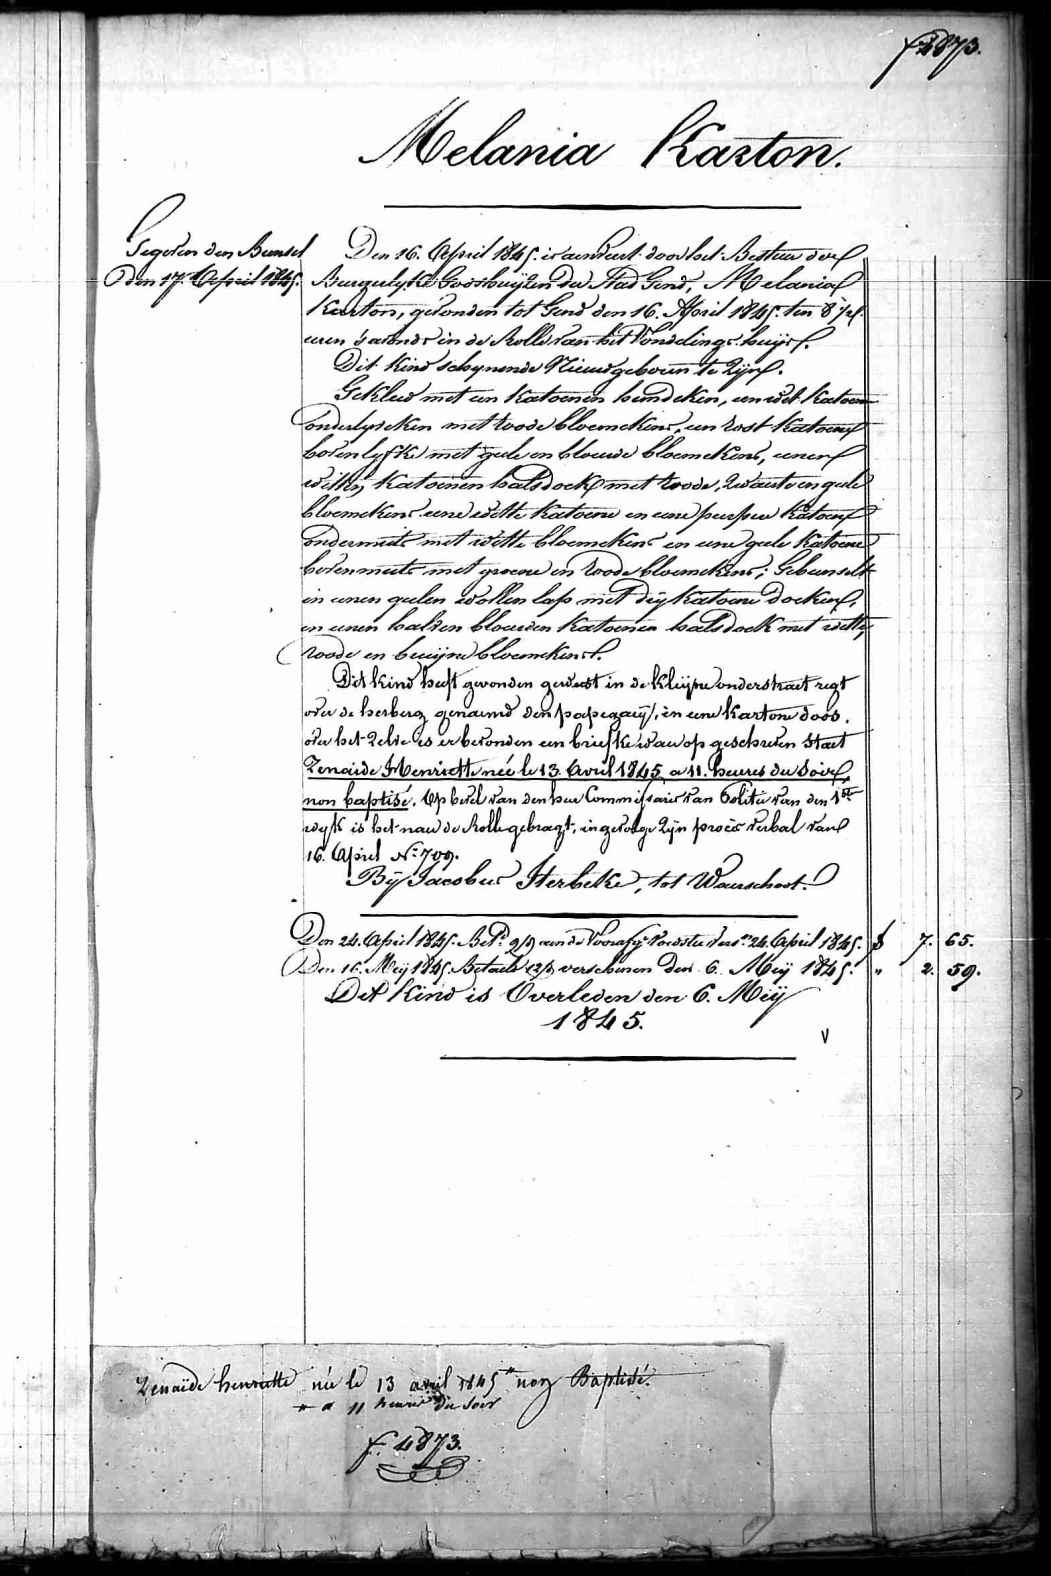 f 4873.
Melania Karton.
Gegeven den Bunsel
den 17. April 1845.
Den 16. April 1845. is aenveirt door het Bestuer der
Burgulyke Godshuyzen der Stad Gend, Melania
Karton, gevonden tot Gend den 16. April 1845. ten 8 1/2
uren s'avonds in de Rolle van het Vondelings huys.
Dit kind schynende Nieuwgeboren te Zyn.
Gekleed met een Katoenen hemdeken, een wit Katoenen
onderlyfeken met roode bloemekens, een rost Katoenen
bovenlyfke met geele en blouwe bloemekens, eenen
witten Katoenen halsdoek met roode, zwarte en geele
bloemekens eene witte Katoene en eene purper Katoene
ondermuts met witte bloemekens en eene geele Katoene
bovenmuts met groene en roode bloemekens; Gebunselt
in eenen geelen wollen lap met dry katoene doeken,
en eenen halven blouwen Katoenen halsdoek met witte,
roode en bruyne bloemekens.
Dit kind heeft gevonden geweest in de kleyne onderstraet regt
over de herberg genaemd den papegaey, in eene kartone doos.
over het Zelve is er bevonden een briefke waer op geschreven staet
Zenaide Henriette née le 13. Avril 1845, a 11. heures du Soir,
non baptisé. Op bevel van den heer Commissaris van Politie van den 1ste
wyk is het naer de Rolle gebragt, ingevolge Zyn procès verbal van
16. April No. 709.
Bÿ Jacobus Sterbeke, tot Waerschoot.
Den 24. April 1845. Betd. 9/9 aen de Voorafge Voedster vers. 24. April 1845. f 7. 65.
Den 16. Meÿ 1845. Betaeld 12/9 verschenen den 6. Meÿ 1845. " 2. 59.
Dit kind is Overleden den 6. Meÿ
1845.
V
Zenaïde henriette née le 13 avril 1845 * non Baptisé.
* a 11 heures du Soir
f. 4873.